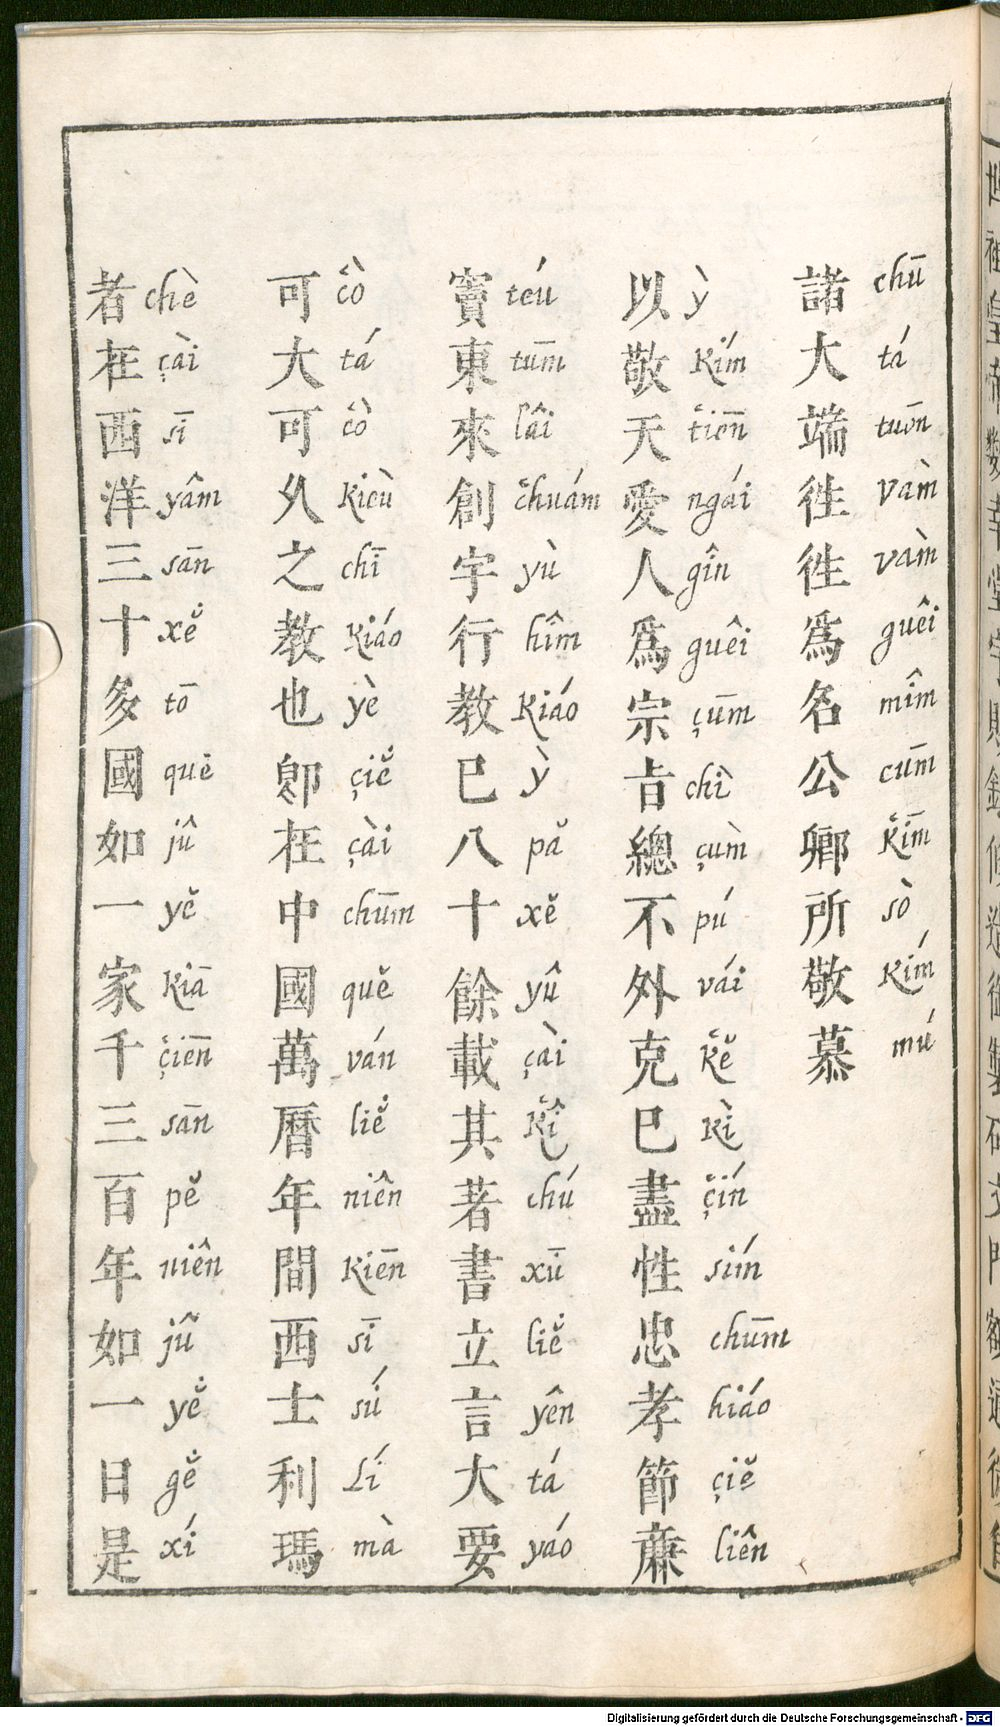 者在西洋三十多國如一家千三百年如一日是
chè çài sī yâm sān xĕ̇ tō quĕ̇ jû yĕ kiā ç̔iēn sān pĕ niên jû yĕ̇ gĕ̇ xí
可大可乆之教也卽在中國萬曆年間西士利瑪
c̔ò tá c̔ò kieù chī kiáo yè çiĕ̇ çài chūm quĕ ván liĕ̇ niên kiēn sī sú lí mà
竇東來創宇行教巳八十餘載其著書立言大要
téu tūm lâi ch̔uám yù hîm kiáo ỳ pă xĕ yû çài k̔î chú xū liĕ̇ yên tá yáo
以敬天愛人爲宗㫖總不外克巳盡性忠孝節亷
ỳ kím t̔iēn ngái gîn guêi çūm chì çùm pú vái k̔ĕ kì ç̔ín sím chūm hiáo çiĕ liên
諸大端徃徃爲名公卿所敬慕
chū tá tuōn vàm vàm guêi mîm cūm k̔īm sò kím mú
Digitalisierung gefördert durch die Deutsche Forschungsgemeinschaft - DFG